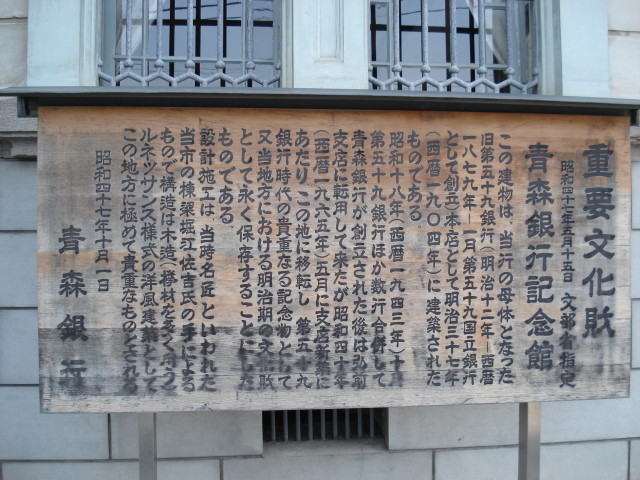 重要文化財
昭和四十七年五月十五日 文部省指定
青森銀行記念館
この建物は、当行の母体となった
旧第五十九銀行(明治十二年—西暦
一八七九年—一月第五十九国立銀行
として創立)本店として明治三十七年
(西暦一九〇四年)に建築された
ものである。
昭和十八年(西暦一九四三年)十月
第五十九銀行ほか数行合併して
青森銀行が創立された後は弘前
支店に転用して来たが昭和四十年
(西暦一九六五年)五月に支店新築に
あたり、この地に移転し、第五十九
銀行時代の貴重なる記念物として
又当地方における明治期の文化財
として永く保存することにした
ものである。
設計施工は、当時名匠といわれた
当市の棟梁堀江佐吉氏の手による
もので構造は木造(欅材を多く用う)
ルネッサンス様式の洋風建築として
この地方に極めて貴重なものとされる
昭和四十七年十月一日
青森銀行